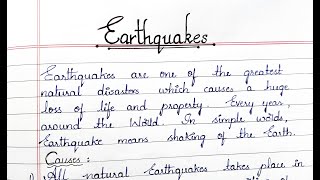 Earthquakes
Earthquakes are one of the greatest
natural disastors which causes a huge
loss of life and property. Every year,
around the World. In simple words,
Earthquake means shaking of the Earth.
Causes :
1) All natural Earthquakes takes place in